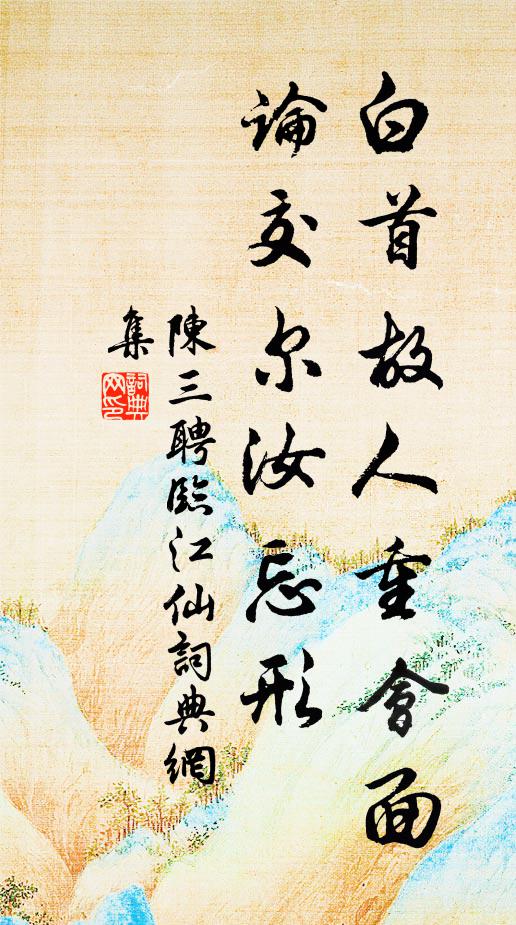 白首故人重會面
論交尔汝忘形
陳三聘臨江仙詞典網
集
詞典網印